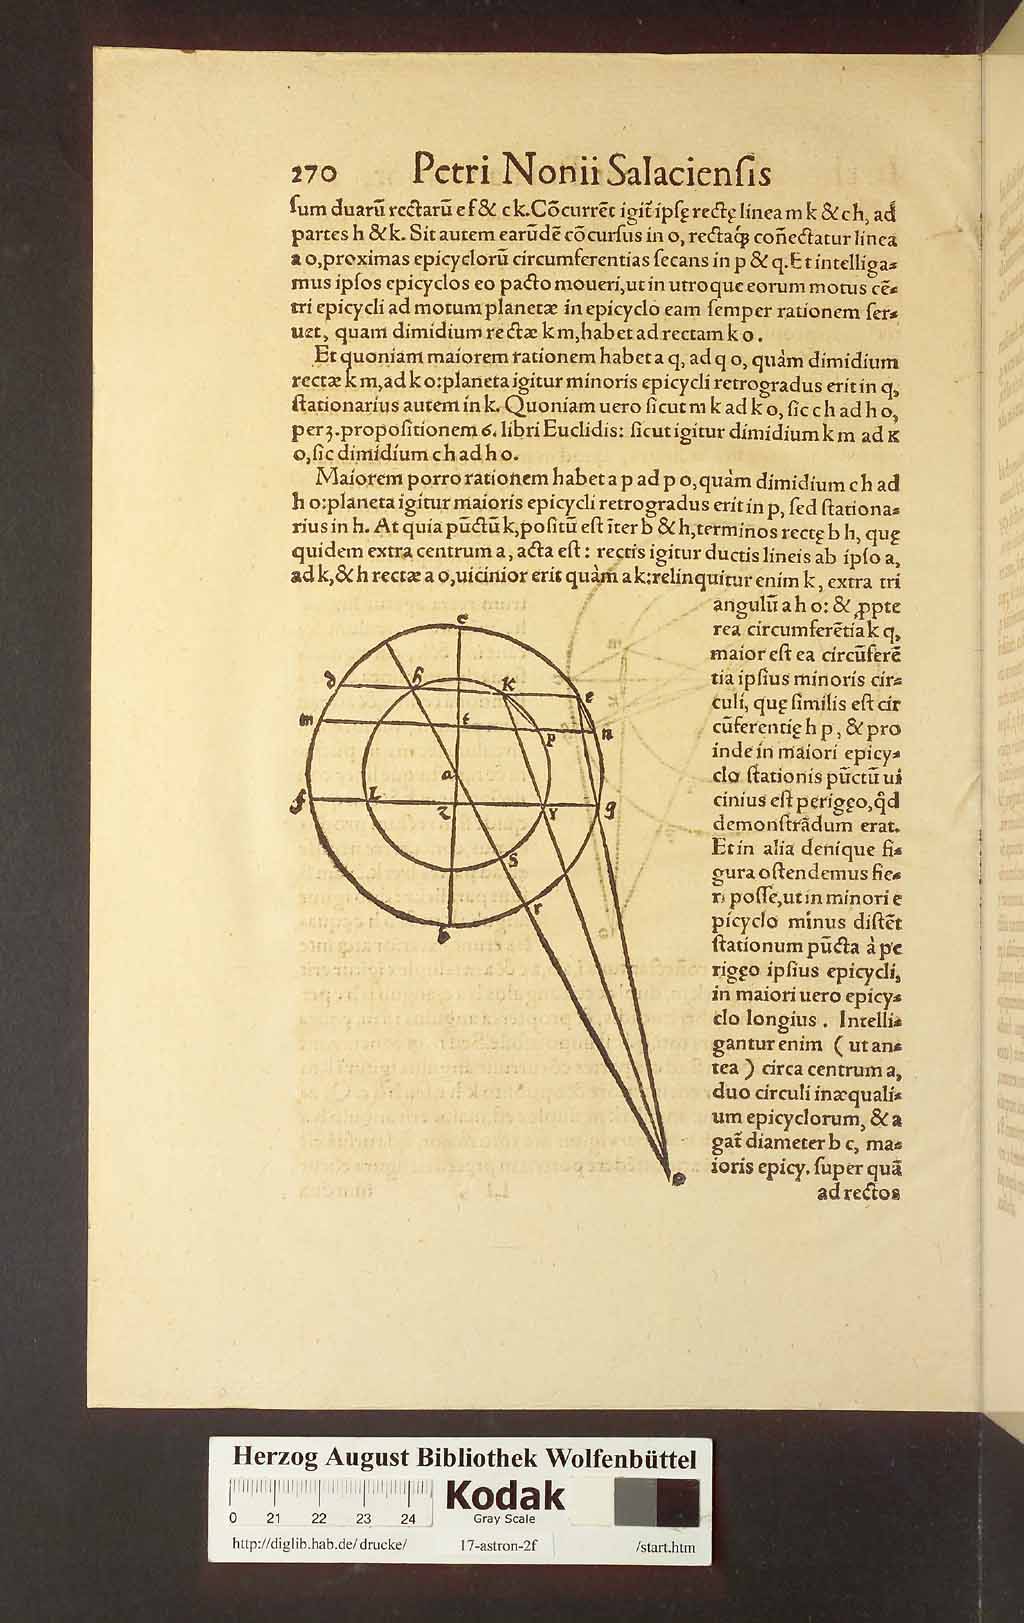 270 Petri Nonii Salaciensis
sum duarū rectarū e f & c k. Cōcurrēt igit̃ ipsę rectę linea m k & c h, ad
partes h & k. Sit autem earūdē cōcursus in o, rectaq́ꝫ coñectatur linea
a o, proximas epicyclorū circumferentias secans in p & q. Et intelliga-
mus ipsos epicyclos eo pacto moueri, ut in utroque eorum motus cē-
tri epicycli ad motum planetæ in epicyclo eam semper rationem ser-
uet, quam dimidium rectæ k m, habet ad rectam k o.
Et quoniam maiorem rationem habet a q, ad q o, quàm dimidium
rectæ k m, ad k o: planeta igitur minoris epicycli retrogradus erit in q,
stationarius autem in k. Quoniam uero sicut m k ad k o, sic c h ad h o,
per 3. propositionem 6. libri Euclidis: sicut igitur dimidium k m ad K
o, sic dimidium c h ad h o.
Maiorem porro rationem habet a p ad p o, quàm dimidium c h ad
h o: planeta igitur maioris epicycli retrogradus erit in p, sed stationa-
rius in h. At quia pūctū k, positū est īter b & h, terminos rectę b h, quę
quidem extra centrum a, acta est: rectis igitur ductis lineis ab ipso a,
ad k, & h rectæ a o, uicinior erit quàm a k: relinquitur enim k, extra tri
angulū a h o: & ꝓpte
rea circumferētia k q,
maior est ea circūferē
tia ipsius minoris cir-
culi, quę similis est cir
cūferentię h p, & pro
inde in maiori epicy-
clo stationis pūctū ui
cinius est perigęo, q̄d
demonstrādum erat.
Et in alia denique fi-
gura ostendemus fie-
ri posse, ut in minori e
picyclo minus distēt
stationum pūcta à pe
rigęo ipsius epicycli,
in maiori uero epicy-
clo longius. Intelli-
gantur enim ( ut an-
tea ) circa centrum a,
duo circuli inæquali-
um epicyclorum, & a
gat̃ diameter b c, ma-
ioris epicy. super quā
ad rectos
c
d h K e
m t p n
a
f L z Y g
S
r
b
o
Herzog August Bibliothek Wolfenbüttel
0 21 22 23 24
Kodak
Gray Scale
http://diglib.hab.de/drucke/ 17-astron-2f /start.htm